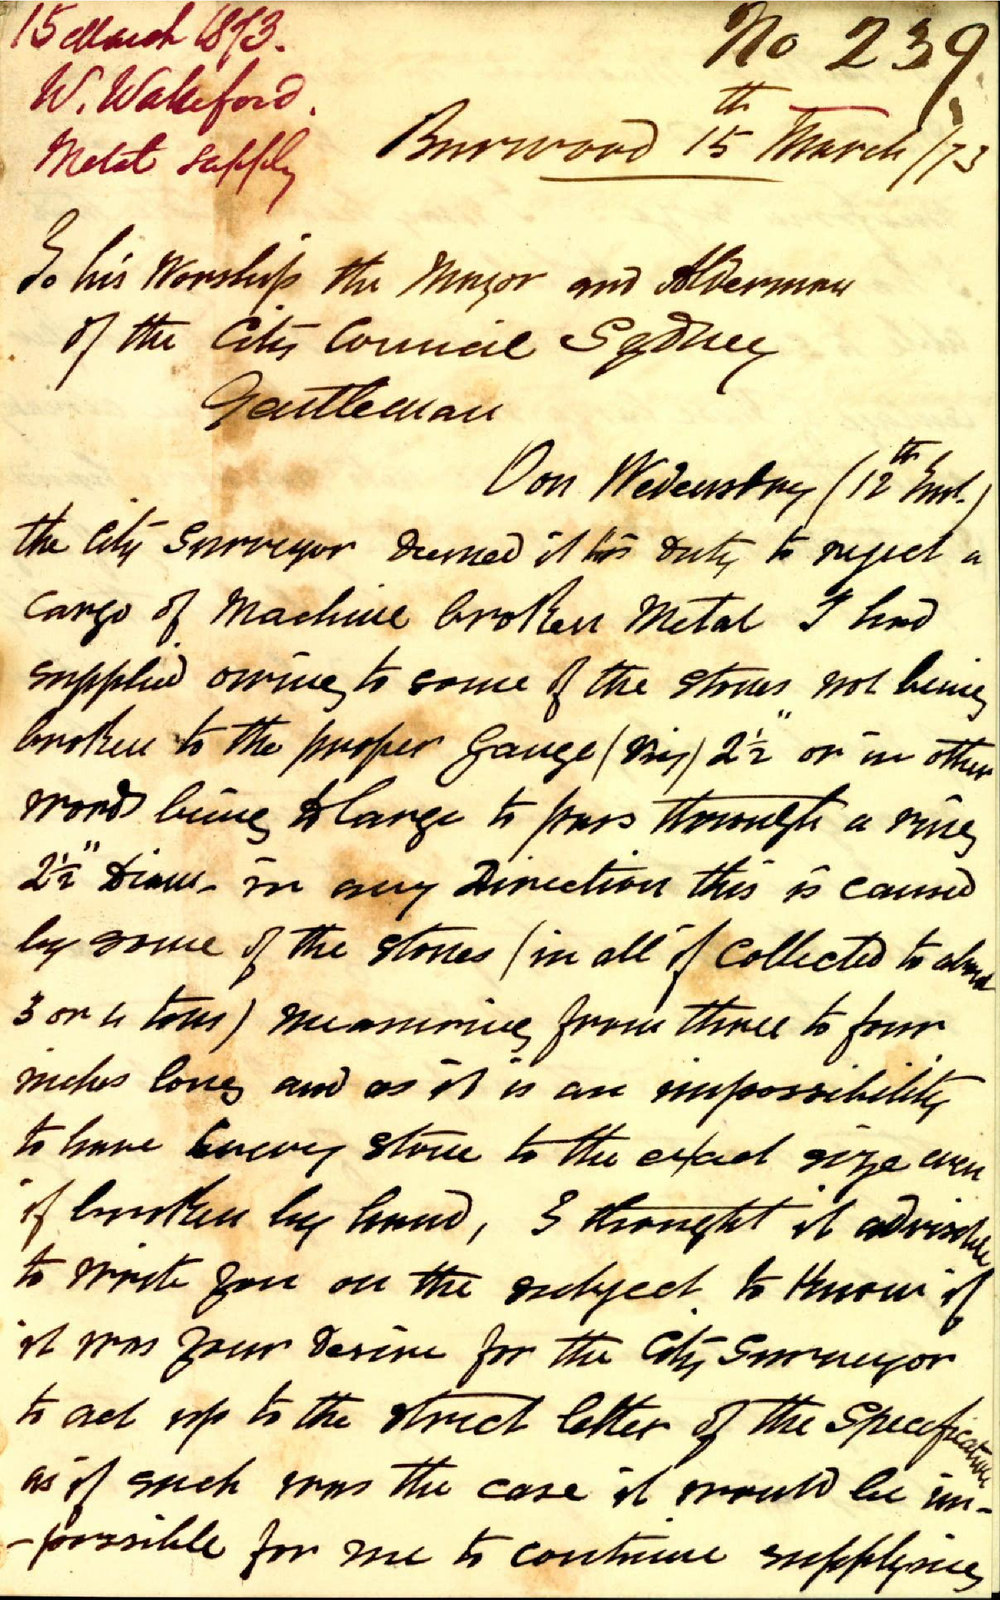 15 March 1873.
No 239
W. Wakeford.
Metal supply
Burwood 15th March /73
To his Worship the Mayor and Aldermen
of the City Council Sydney
Gentleman
On Wedensday (12th Inst.)
the City Surveyor deemed it his duty to reject a
cargo of Machine broken Metal I had
supplied owing to some of the stones not being
broken to the proper Gauge (viz) 2½" or in other
words being to large to pass through a ring
2½" Diam. in any Direction this is caused
by some of the stones (in all if collected to about
3 or 4 tons) measuring from three to four
inches long and as it is an impossibility
to have every stone to the exact size even
if broken by hand, I thought it advisable
to write you on the subject to know if
it was your desire for the City Surveyor
to act up to the strict letter of the Specification
as if such was the case it would be im-
-possible for me to continue supplying